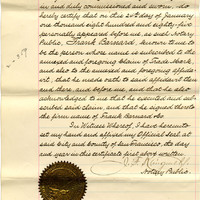 in and duly commissioned and sworn, do
hereby certify that on this 24th day of January
one thousand eight hundred and eighty five
personally appeared before me, as such Notary
Public, Frank Barnard, known to me
to be the person whose name is subscribed to the
annexed and foregoing Claim of Trade Mark,
and also to the annexed and foregoing affida-
vit; that he made oath to said affidavit then
and there, and before me; and that he also
acknowledged to me that he executed and sub-
scribed said claim, and that he signed thereto
the firm name of Frank Barnard & Co.
In Witness Whereof, I have hereunto
set my hand and affixed my Official Seal at
said city and County of San Francisco, the day
and year in this certificate first above written.
Notary Public.